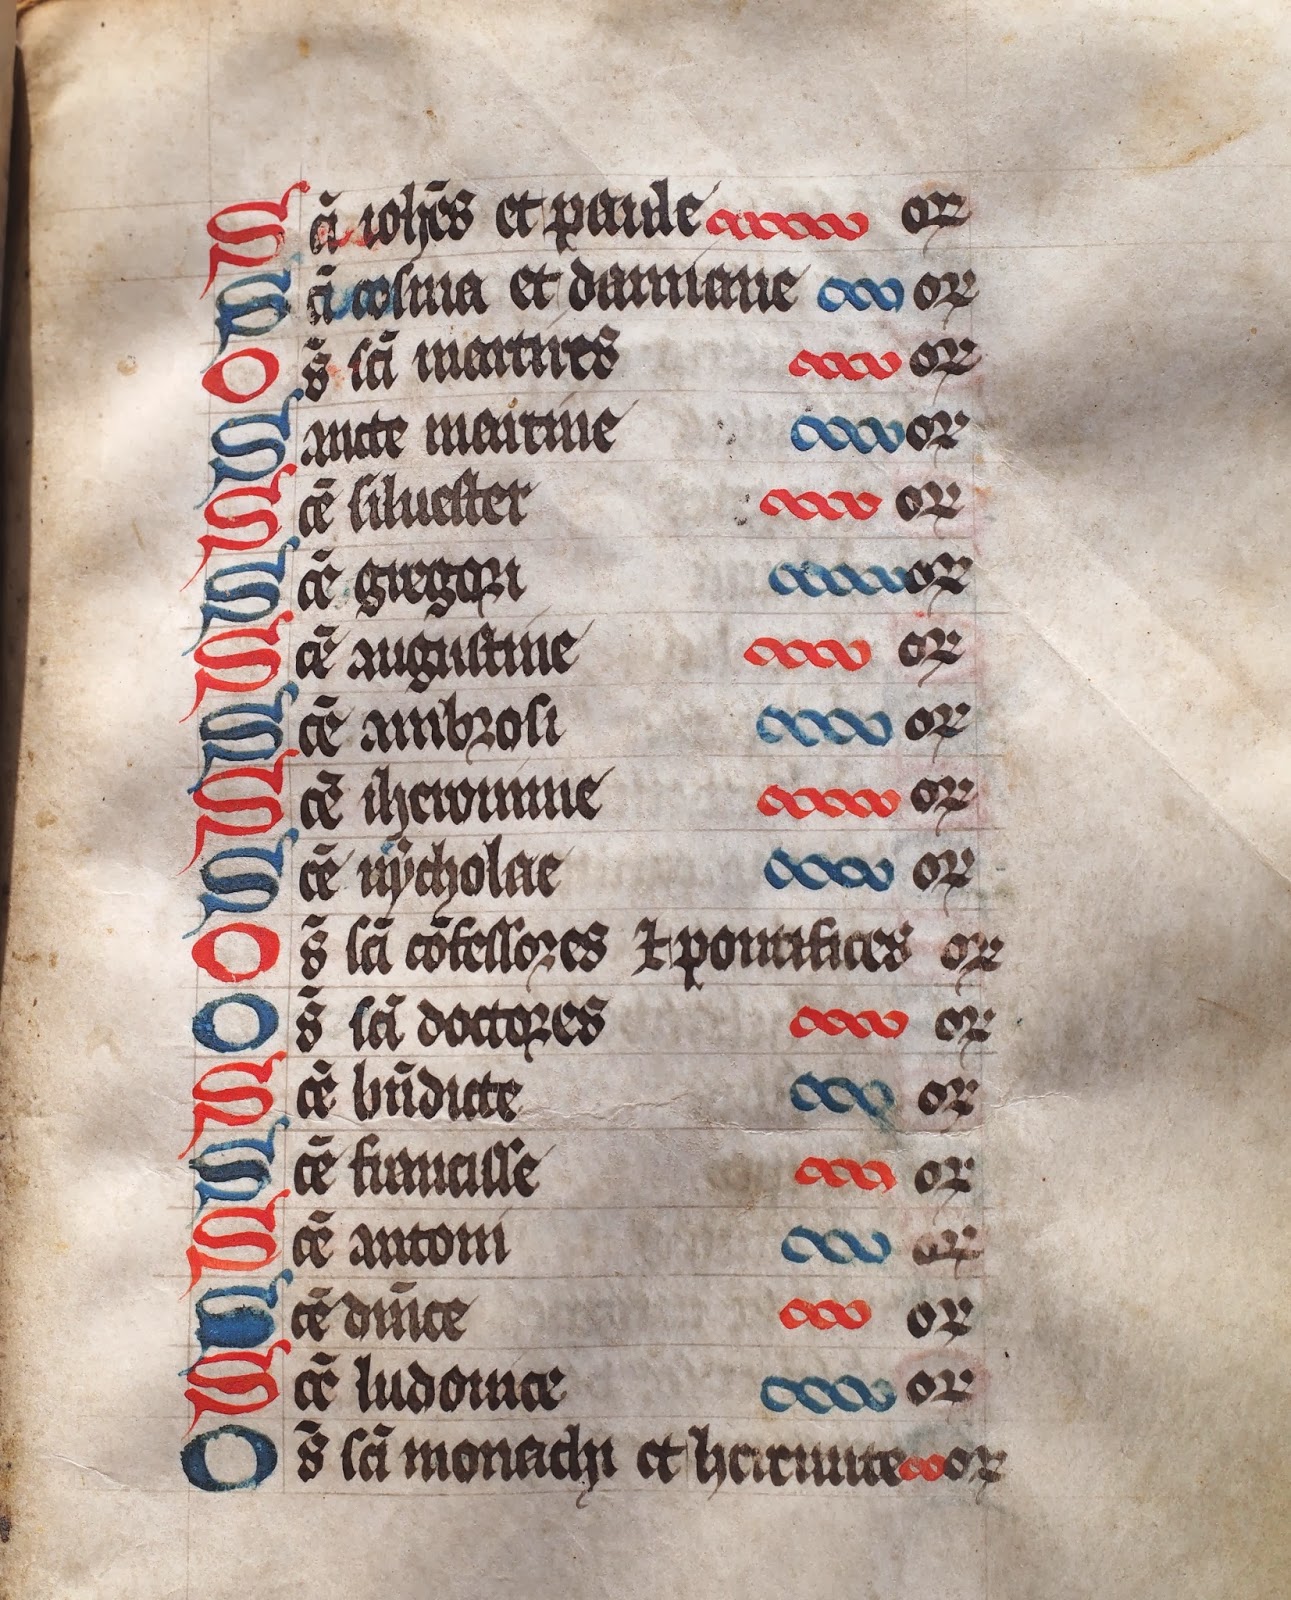 Scī iohēs et paule or
Scī cosma et damiane or
Os̄ scī martires or
Sancte martine or
Scē siluester or
Scē gregori or
Scē augustine or
Scē ambrosi or
Scē iheronime or
Scē nẏcholae or
Os̄ scī cōfessores ⁊ pontifices or
Os̄ scī doctores or
Scē bn̄dicte or
Scē francisse or
Scē antoni or
Scē dm̄ice or
Scē ludouice or
Os̄ scī monachi et heremite or